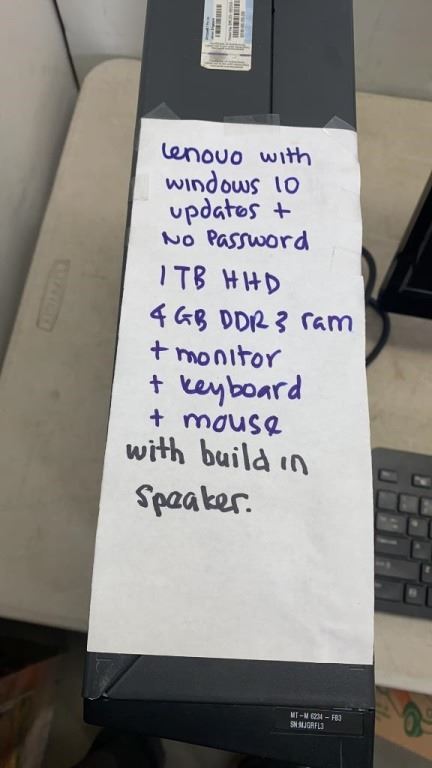 Lenovo with
windows 10
updates +
No Password
1 TB HHD
4 GB DDR3 ram
+ monitor
+ keyboard
+ mouse
with build in
speaker.
MT-M 6234 - FB3
SN:MJGRFL3